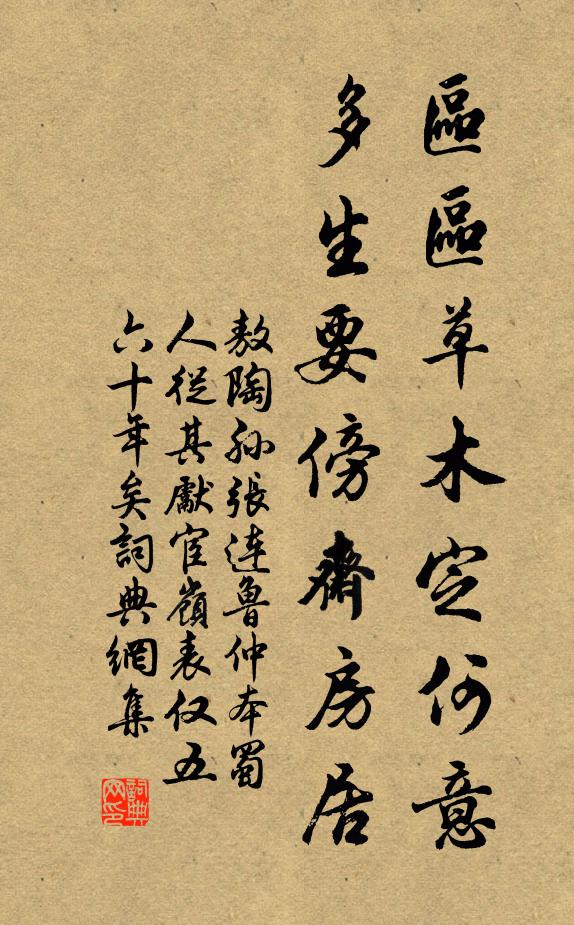 區區草木定何意
多生要傍齋房居
敖陶孫張達魯仲本蜀
人從其獻宦嶺表仅五
六十年矣詞典網集
詞典网印